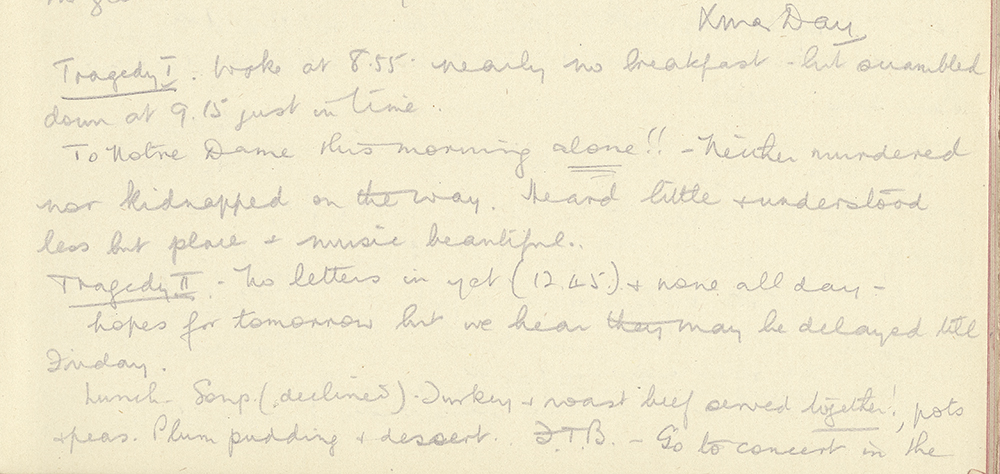 Xmas Day
Tragedy I. Woke at 8.55. nearly no breakfast - but scrambled
down at 9.15 just in time.
To Notre Dame this morning alone!! - Neither murdered
nor kidnapped on the way. Heard little & understood
less but place & music beautiful..
Tragedy II - No letters in yet (12.45.) & none all day -
hopes for tomorrow but we hear they may be delayed till
Friday.
Lunch - Soup (declined). Turkey & roast beef served together!, pots
& peas. Plum pudding & dessert. F.T.B. - Go to concert in the